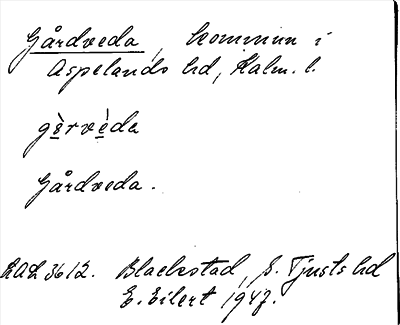 Gårdveda, kommun i
Aspelands hd, Kalm. l.
gɛ̀rvèda
Gårdveda.
ULMA 3612. Blackstad, S. Tjusts hd
E. Eilert 1947.